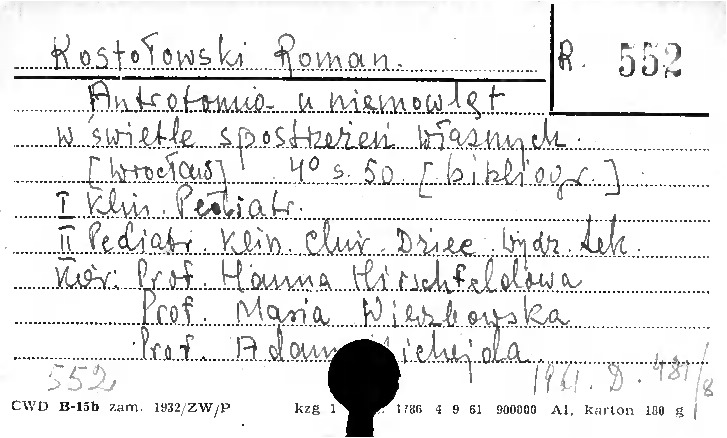 Kostołowski Roman.
R. 552
Antrotomia u niemowląt
w świetle spostrzeżeń własnych.
[Wrocław] 4° s. 50. [bibliogr.]
I Klin. Pediatr.
II Pediatr. Klin. Chir. Dziec. Wydz. Lek.
Kier: Prof. Hanna Hirszfeldowa
Prof. Maria Wierzbowska
Prof. Adam Michejda.
552
1961. D. 481/8
CWD B-15b zam. 1932/ZW/P kzg 1 1786 4 9 61 900000 A1, karton 180 g